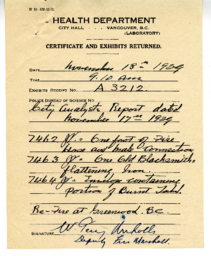 H.D. 
HEALTH DEPARTMENT
CITY HALL . . . VANCOUVER, B.C.
(LABORATORY)
CERTIFICATE AND EXHIBITS RETURNED.
DATE November 18th 1929
TIME 9.10 am
EXHIBITS RECEIPT NO. A 3212
POLICE BUREAU OF SCIENCE NO.
City Analysts Report dated
November 17th 1929
7462 V - One
7463 V - One Old Blacksmiths
Flattening Iron
7464 V - Envelope containing
portion of Burnt
Re - Fire at Greenwood, B.C.
SIGNATURE
Deputy Fire Marshall.